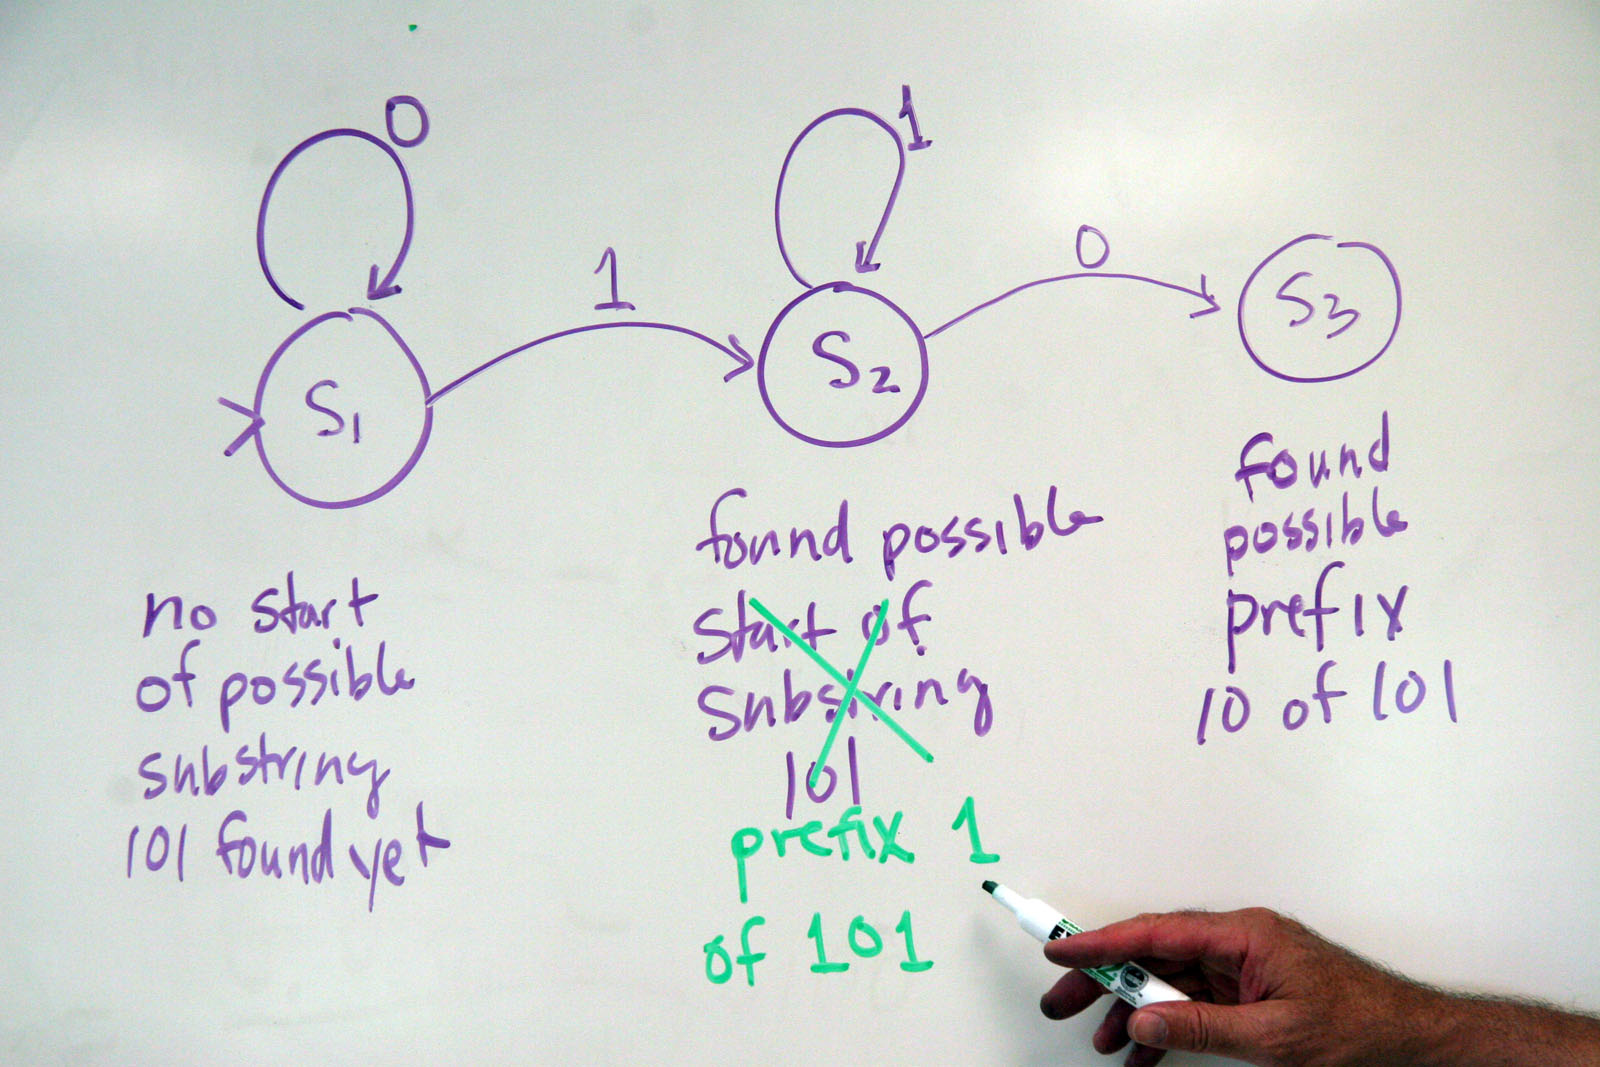 0
1
1
0
S1
S2
S3
no start
of possible
substring
101 found yet
found possible
start of
substring
101
prefix 1
of 101
found
possible
prefix
10 of 101